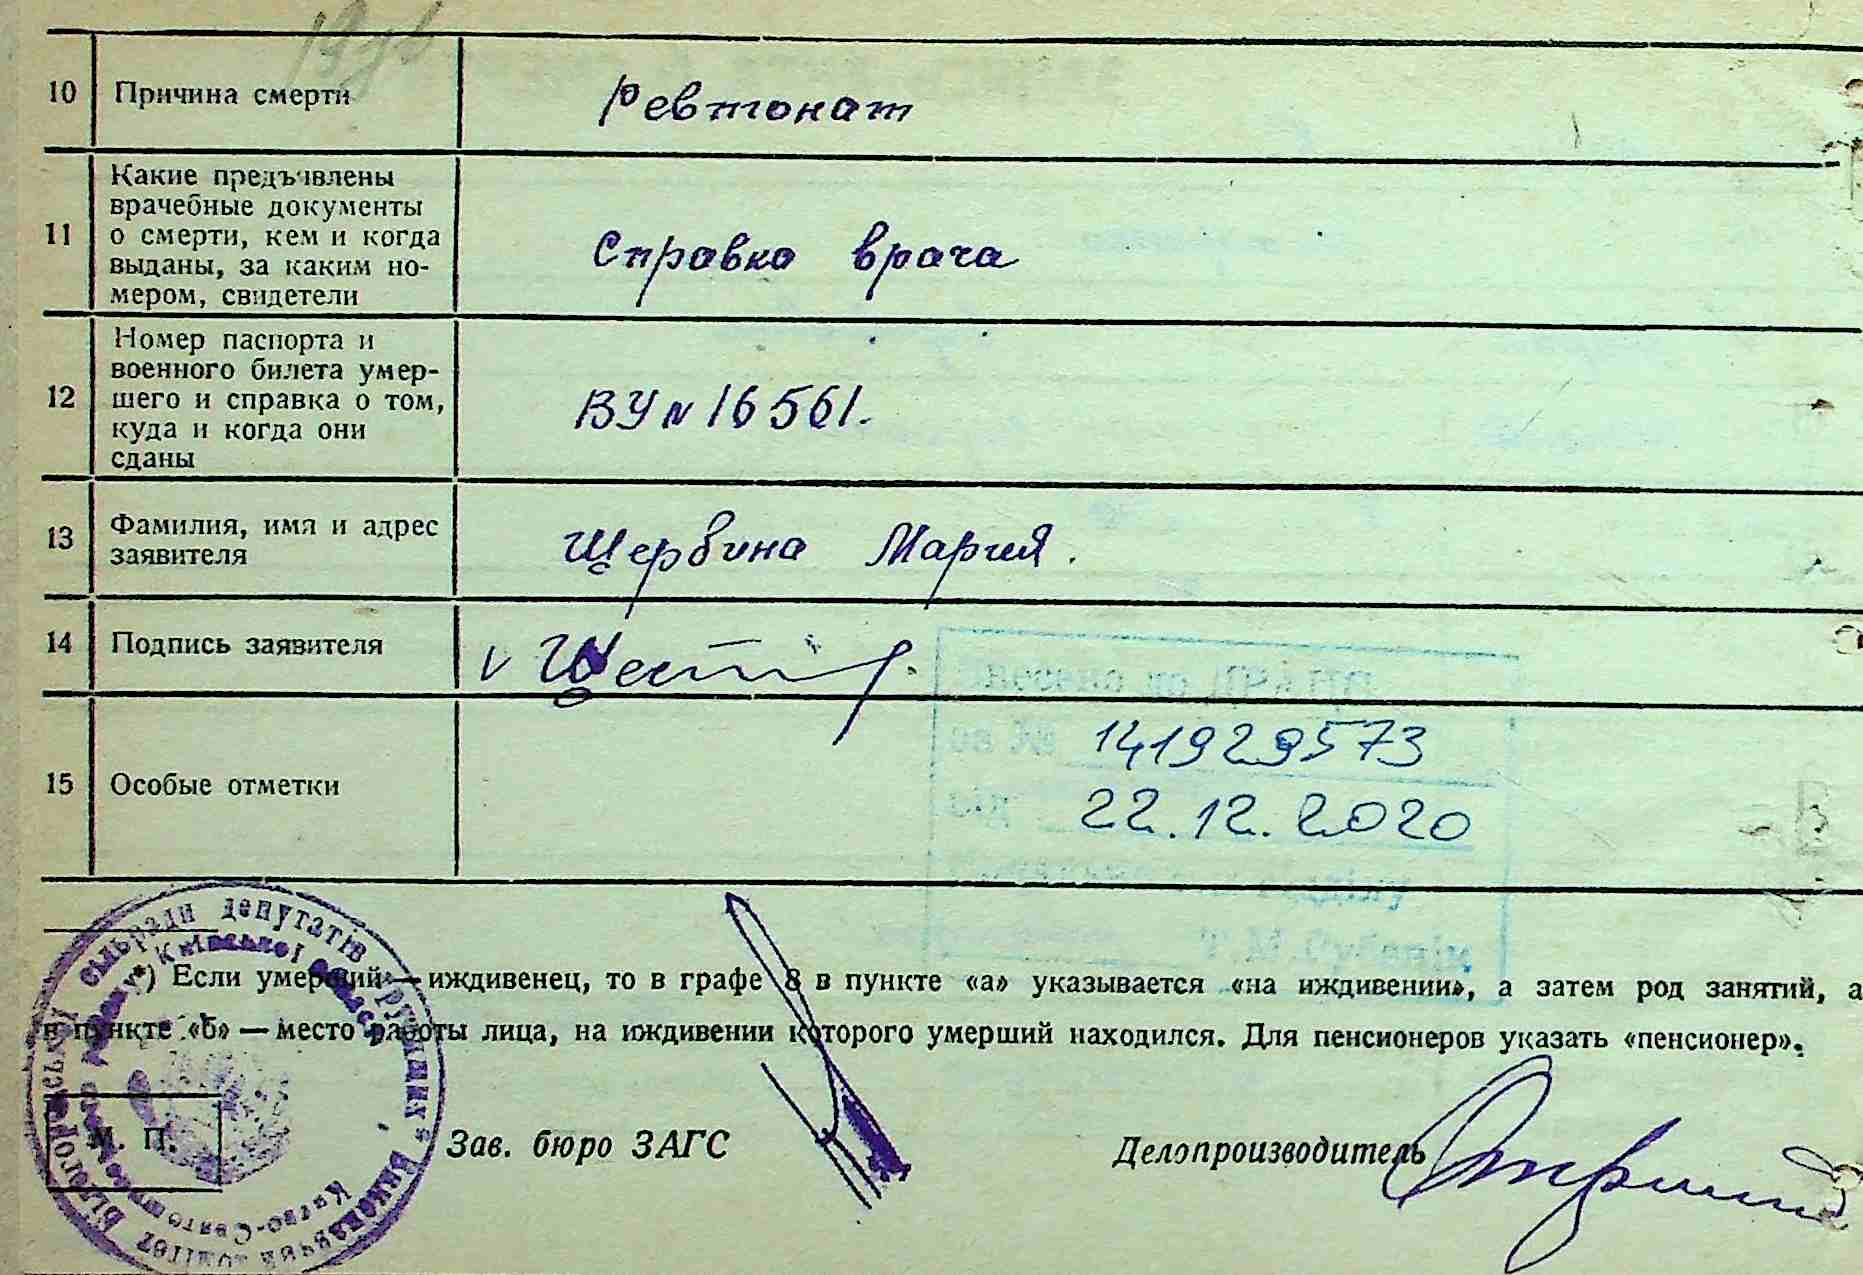 10 Причина смерти Ревтонат
11 Какие предъявлены
врачебные документы
о смерти, кем и когда
выданы, за каким но-
мером, свидетели
Справка врача
12 Номер паспорта и
военного билета умер-
шего и справка о том,
куда и когда они
сданы
ВУ № 16561.
13 Фамилия, имя и адрес
заявителя
Щербина Мария.
14 Подпись заявителя
15 Особые отметки
за № 141929573
від 22.12.2020
*) Если умерший — иждивенец, то в графе 8 в пункте «а» указывается «на иждивении», а затем род занятий, а
в пункте «б» — место работы лица, на иждивении которого умерший находился. Для пенсионеров указать «пенсионер».
М. П.
Зав. бюро ЗАГС
Делопроизводитель
депутатів трудящих
Київської
Києво-Святошин